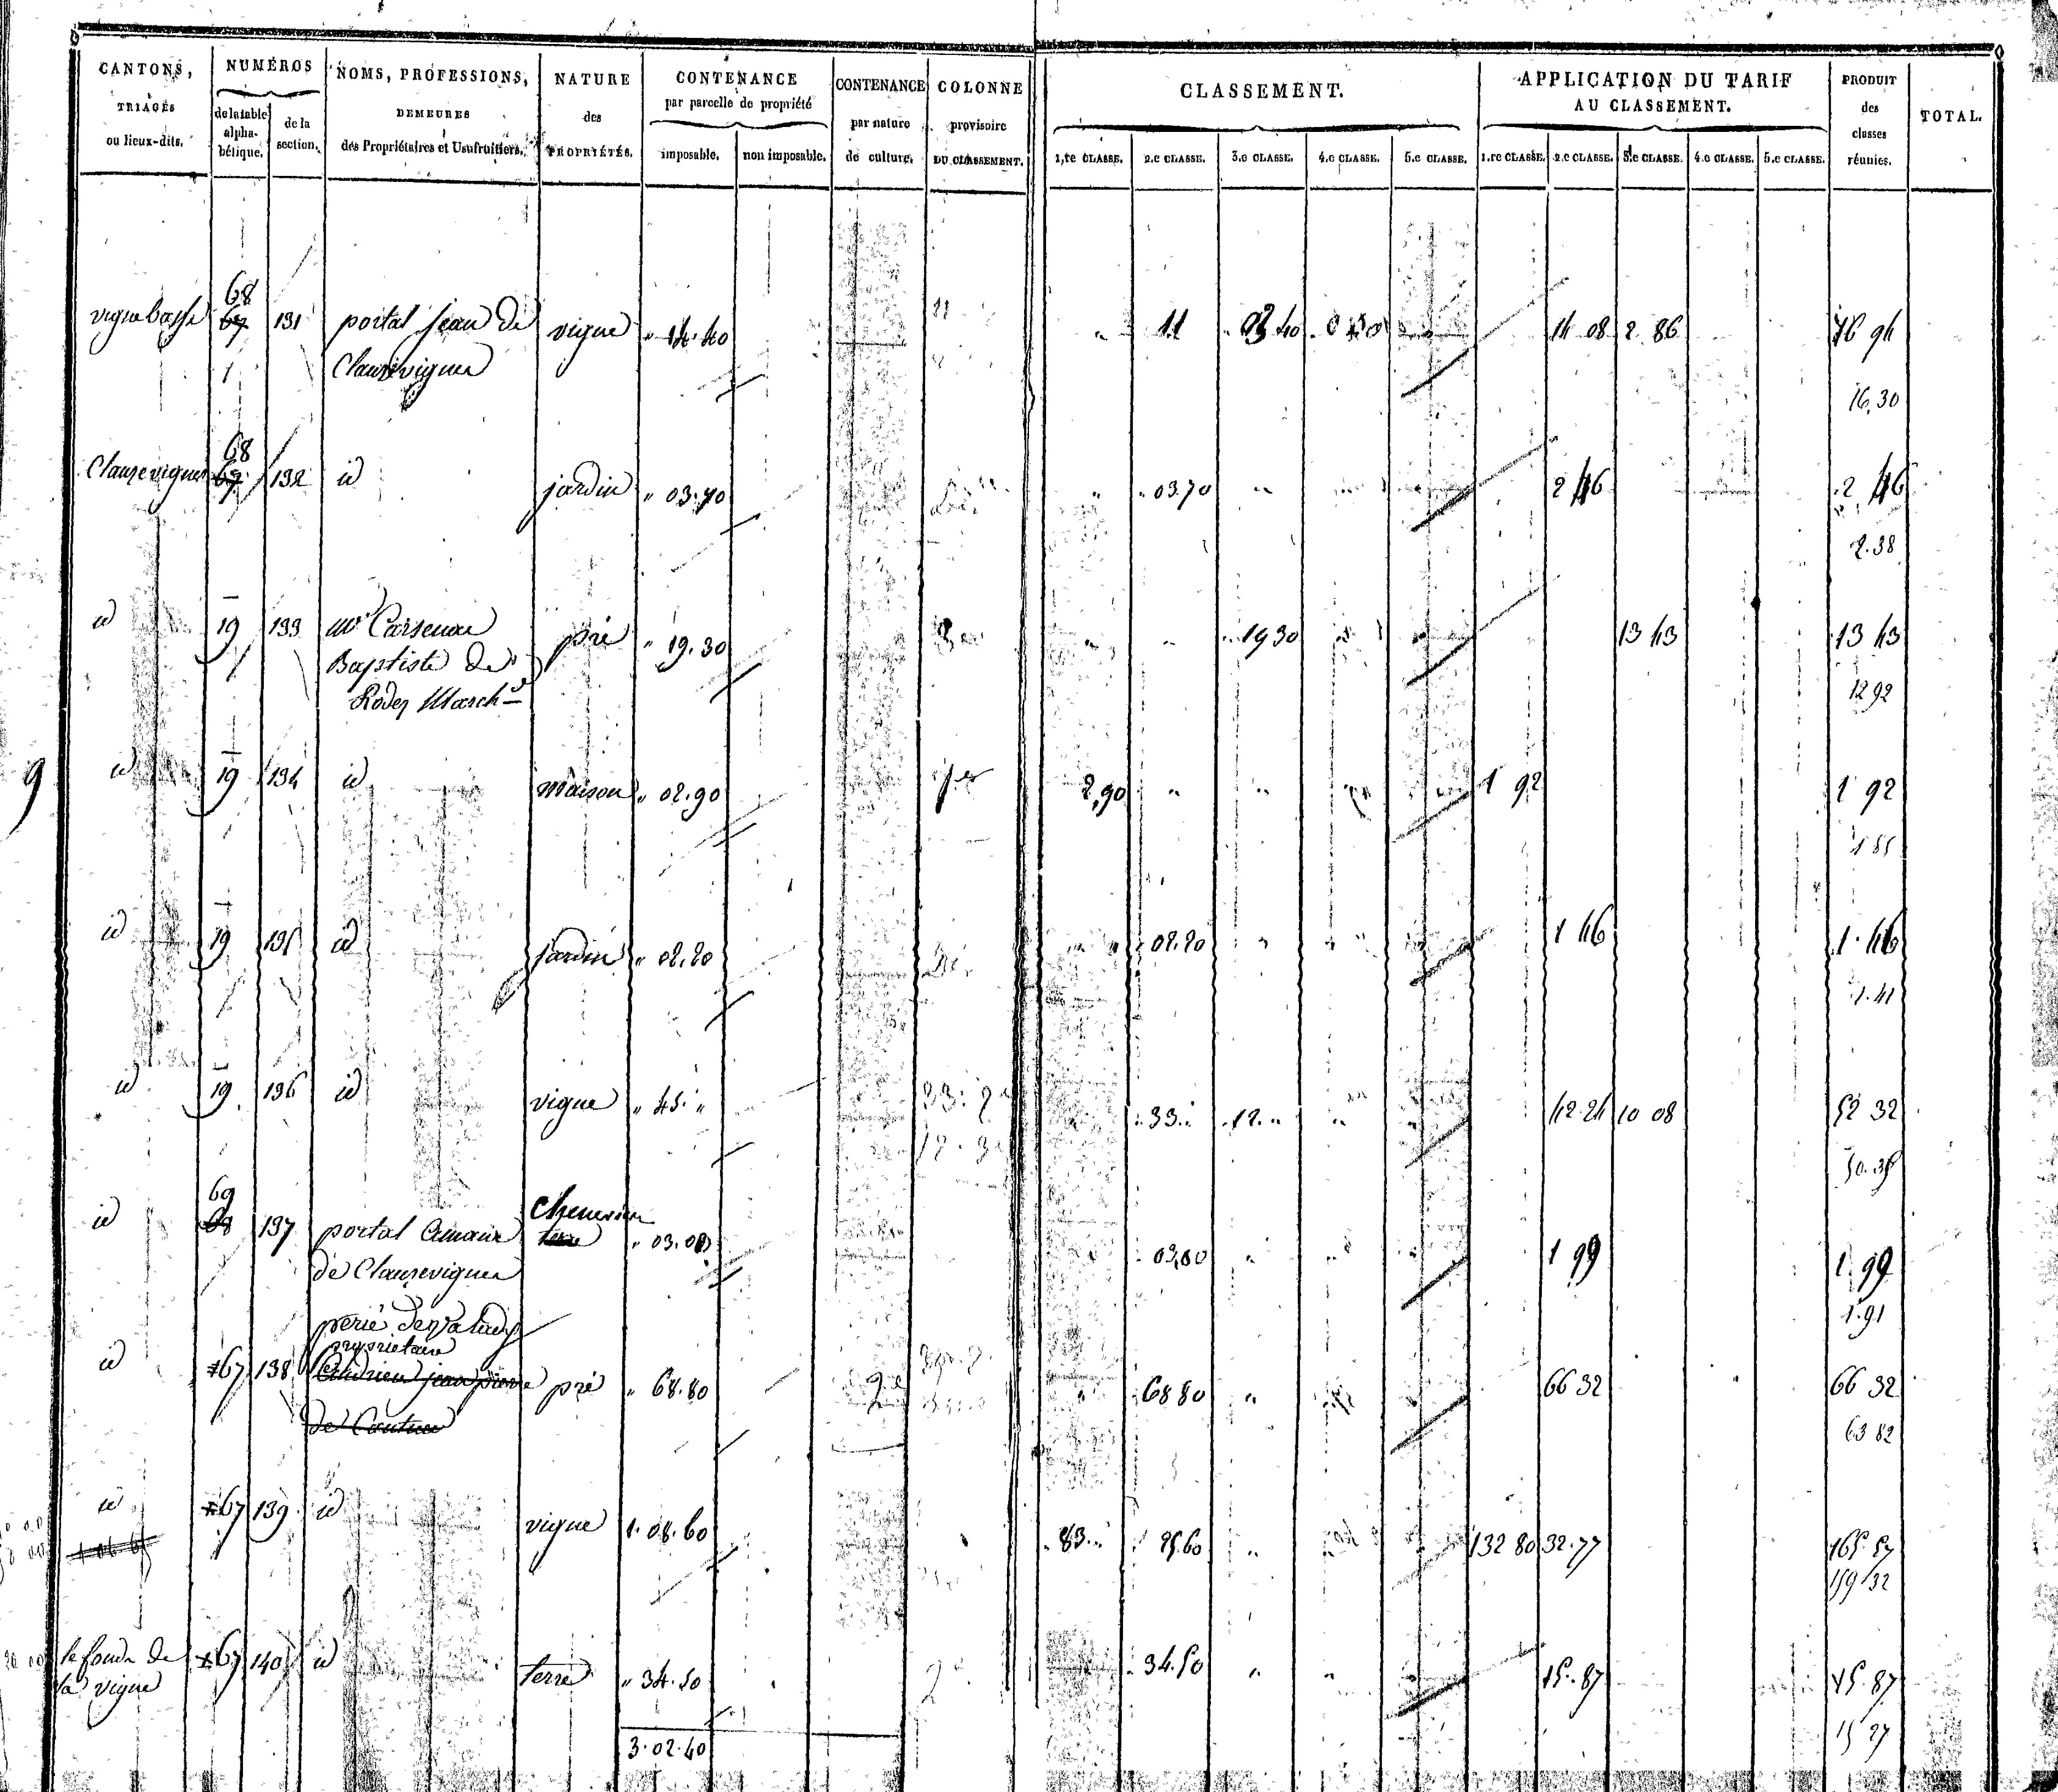 CANTONS, NUMÉROS NOMS, PROFESSIONS, NATURE CONTENANCE CONTENANCE COLONNE CLASSEMENT. APPLICATION DU TARIF PRODUIT TOTAL.
TRIAGES de la table de la DEMEURES des par parcelle de propriété par nature provisoire AU CLASSEMENT. des
ou lieux-dits. alpha-bétique. section. des Propriétaires et Usufruitiers. PROPRIÉTÉS. imposable. non imposable. de culture. DU CLASSEMENT. 1.re CLASSE. 2.e CLASSE. 3.e CLASSE. 4.e CLASSE. 5.e CLASSE. 1.re CLASSE. 2.e CLASSE. 3.e CLASSE. 4.e CLASSE. 5.e CLASSE. classes réunies.
68
vigne basse 67 131 portal jean de vigne " 14.40 11 03 40 14 08 2 86 16 94
Clauzevignes
16,30
68
Clauzevignes 67 132 id jardin " 03.70 " " 03.70 " 2 46 2 46
2.38
id 19 133 mr Carsenac pré " 19.30 " " 19 30 13 43 13 43
Baptiste de
Rodez March.d 12 92
9 id 19 134 id maison " 02.90 1re 2,90 " " 1 92 1 92
1 85
id 19 135 id jardin " 02.20 02.20 " 1 46 1.46
1.41
id 19 136 id vigne " 45. " 33. 2e 33. " 12. " 42.24 10 08 52 32
12. 3e
50.35
69 Chenevière
id 68 137 portal Amans terre " 03.00 03,00 " 1 99 1.99
de Clauzevignes
1.91
perié de Valady
propriétaire
id 67 138 jean pierre pré " 68.80 2e " 68 80 " 66 32 66 32
de
63 82
id 67 139 id vigne 1.08.60 83. " 25.60 " 132 80 32.77 165 57
159 32
le fond de 67 140 id terre " 34.50 2e 34.50 " " 15.87 15.87
la vigne
15 27
3.02.40